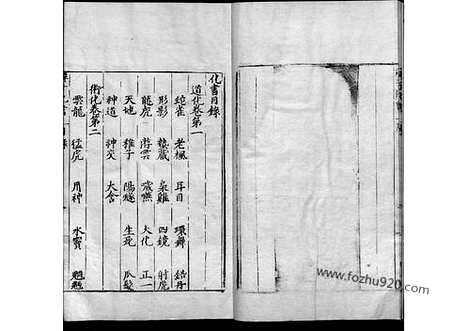 化書目錄
道化卷第一
蛇雀 老楓 耳目 環舞 鉛丹
形影 蟄藏 梟雞 四鏡 射虎
龍虎 游雲 噦嚥 大化 正一
天地 稚子 陽燧 生死 爪髮
神道 神交 大含
術化卷第二
雲龍 猛虎 用神 水竇 魍魎
www.fozhu920.com